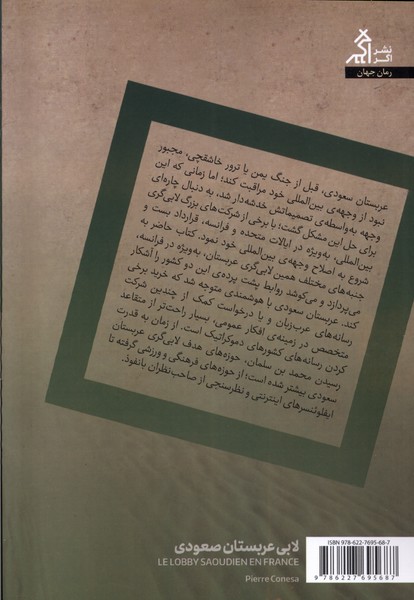 نشر
اگر
رمان جهان
عربستان سعودی، قبل از جنگ یمن یا ترور خاشقچی، مجبور
نبود از وجهه‌ی بین‌المللی خود مراقبت کند؛ اما زمانی که این
وجهه به‌واسطه‌ی تصمیماتش خدشه‌دار شد، به دنبال چاره‌ای
برای حل این مشکل گشت؛ با برخی از شرکت‌های بزرگ لابی‌گری
بین‌المللی، به‌ویژه در ایالات متحده و فرانسه، قرارداد بست و
شروع به اصلاح وجهه‌ی بین‌المللی خود نمود. کتاب حاضر به
جنبه‌های مختلف همین لابی‌گری عربستان، به‌ویژه در فرانسه،
می‌پردازد و می‌کوشد روابط پشت پرده‌ی این دو کشور را آشکار
کند. عربستان سعودی با هوشمندی متوجه شد که خرید برخی
رسانه‌های عرب‌زبان و یا درخواست کمک از چندین شرکت
متخصص در زمینه‌ی افکار عمومی، بسیار راحت‌تر از متقاعد
کردن رسانه‌های کشورهای دموکراتیک است. از زمان به قدرت
رسیدن محمد بن سلمان، حوزه‌های هدف لابی‌گری عربستان
سعودی بیشتر شده است؛ از حوزه‌های فرهنگی و ورزشی گرفته تا
ایفلوئنسرهای اینترنتی و نظرسنجی از صاحب‌نظران بانفوذ.
لابی عربستان صعودی
LE LOBBY SAOUDIEN EN FRANCE
Pierre Conesa
ISBN 978-622-7695-68-7
9 786227 695687